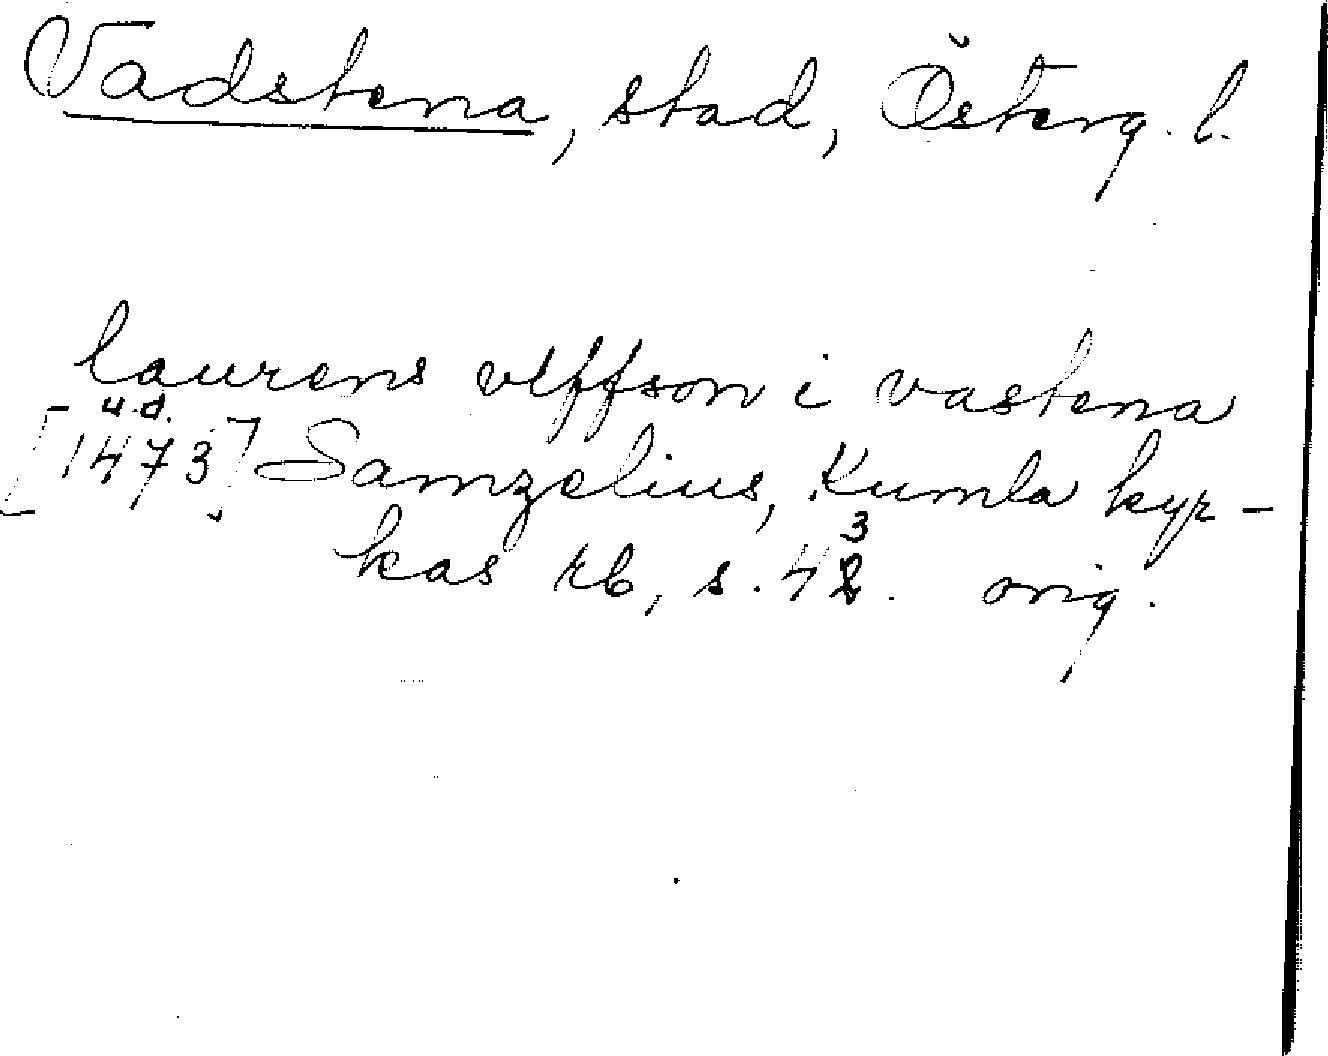 Vadstena, stad, Österg. l.
laurens vlffson i vastena
u.d.
[1473] Samzelius, Kumla kyr-
3
kas rb, s. 42. orig.